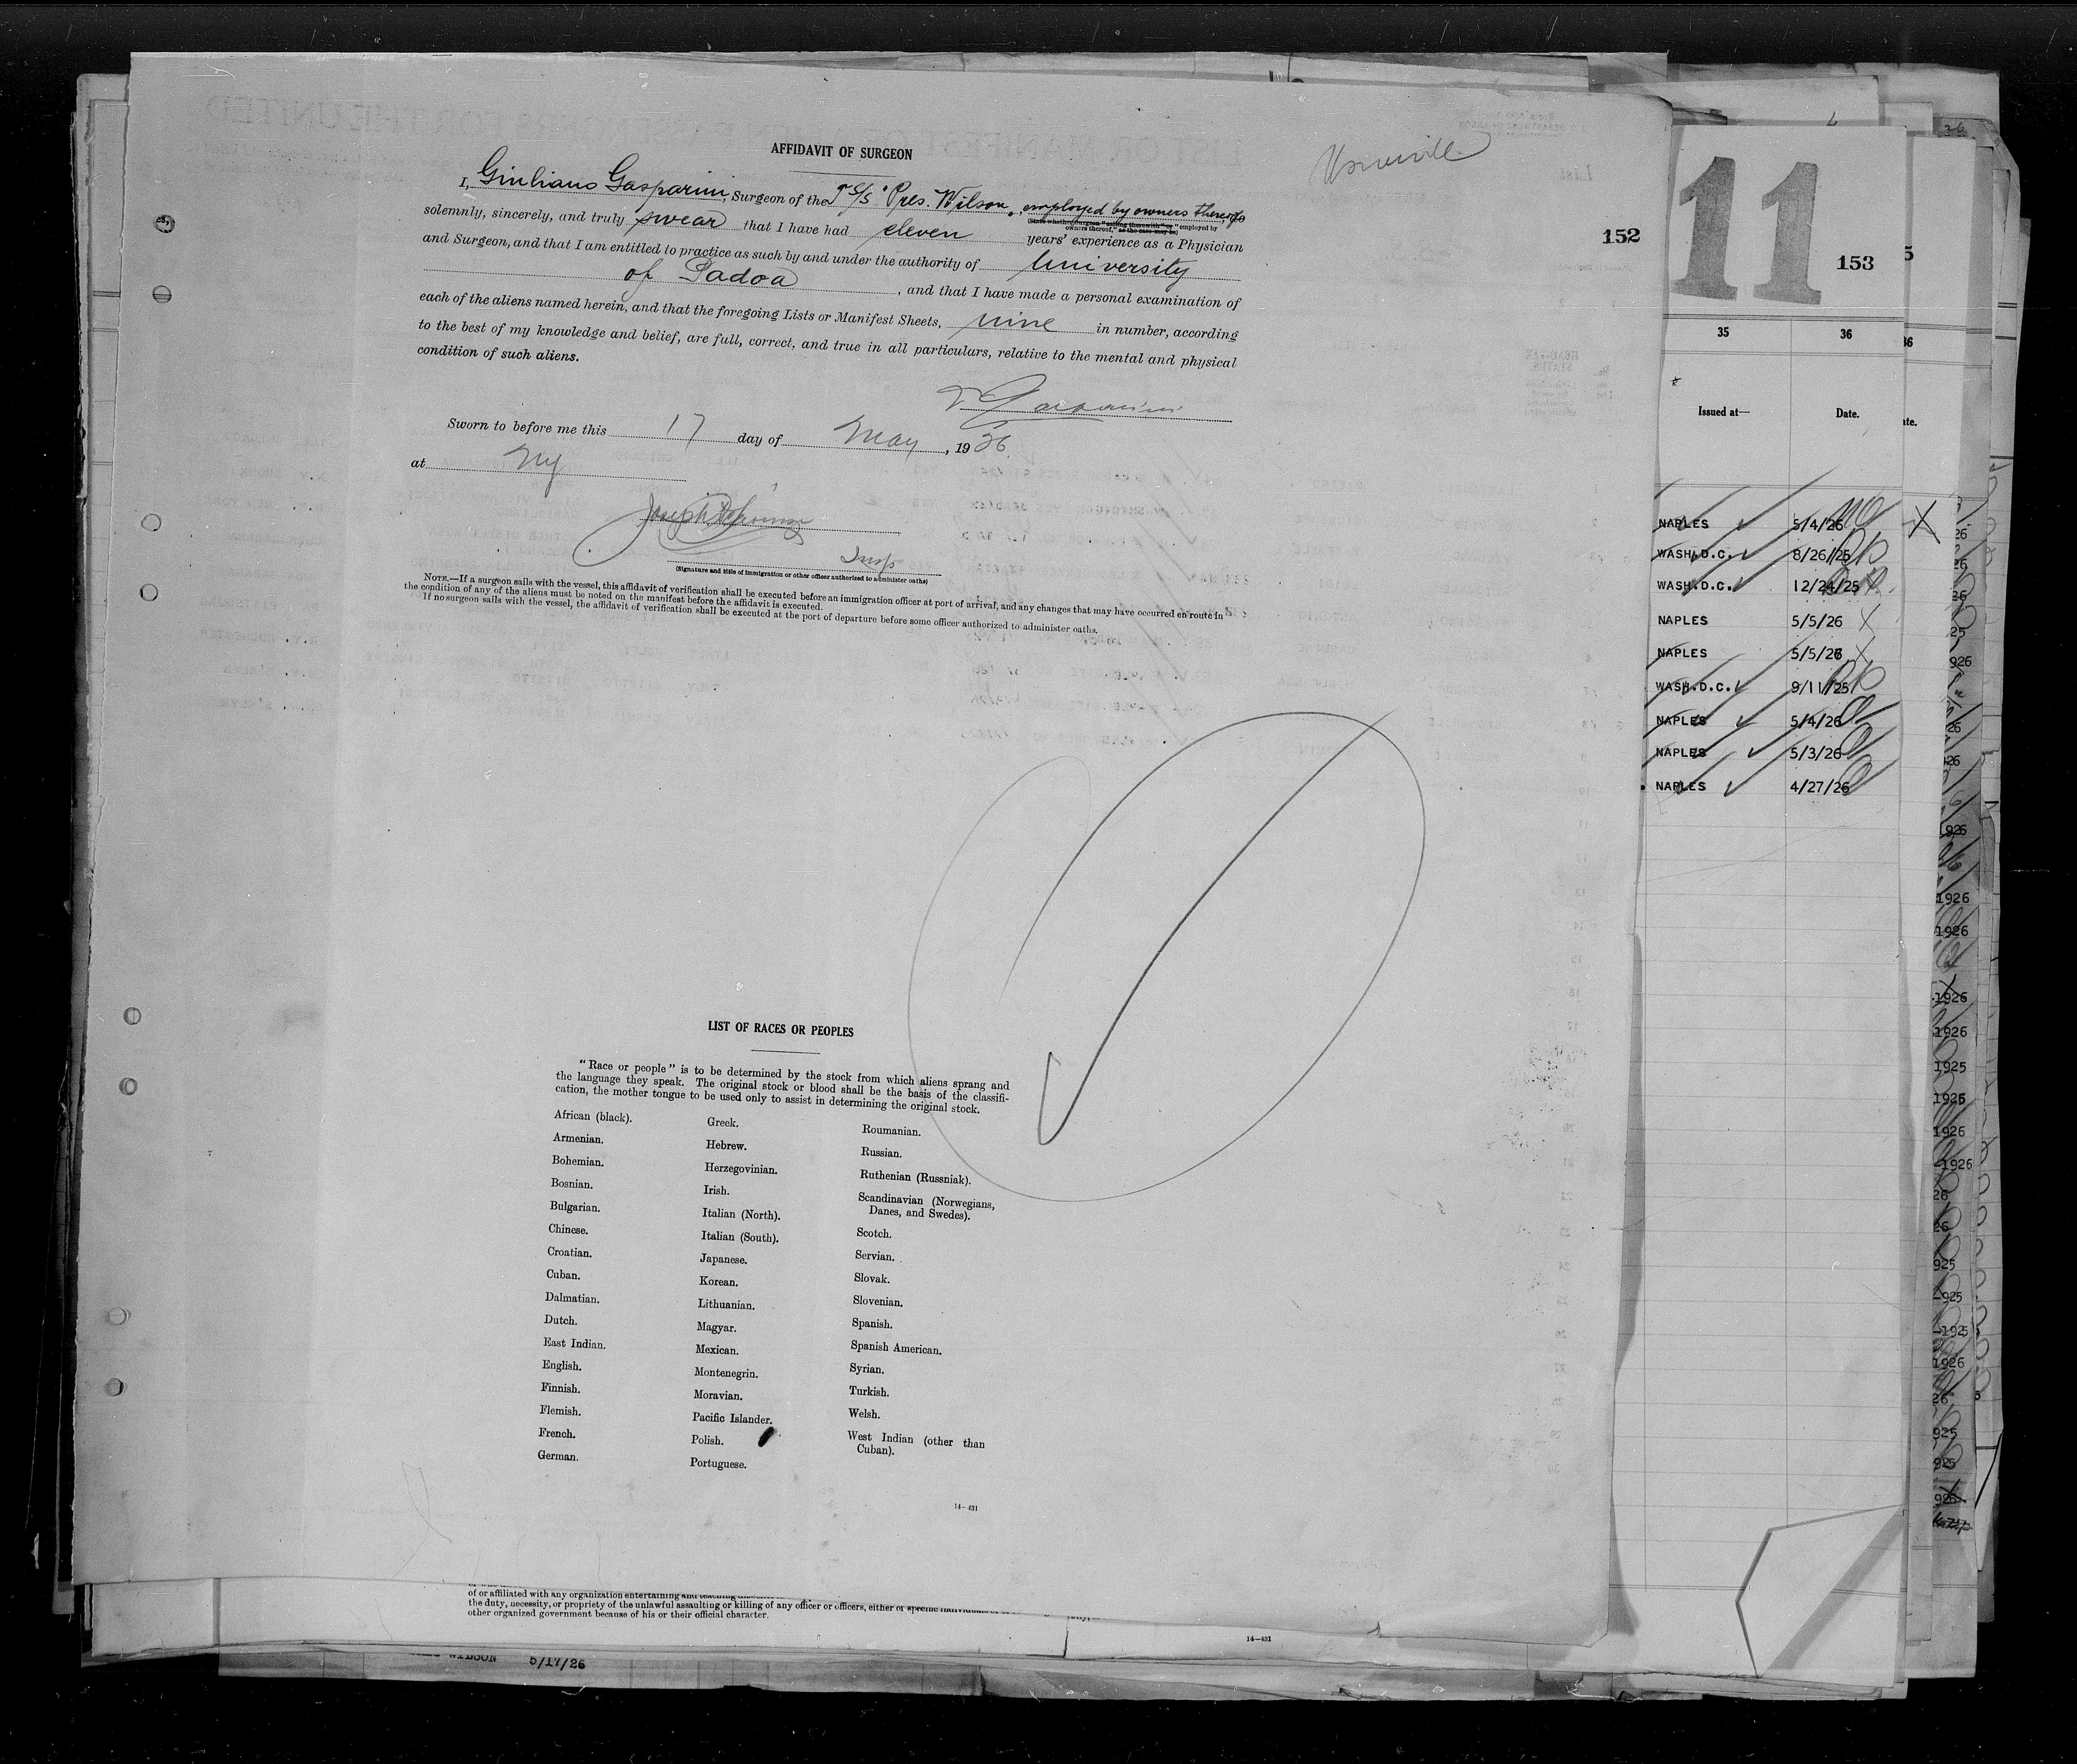 AFFIDAVIT OF SURGEON
I, Giuliano Gasparini, Surgeon of the T S/S "Pres. Wilson", employed by owners thereof, do
(State whether surgeon "sailing therewith" or "employed by
owners thereof," as the case may be)
solemnly, sincerely, and truly swear that I have had eleven years' experience as a Physician
and Surgeon, and that I am entitled to practice as such by and under the authority of University
of Padoa, and that I have made a personal examination of
each of the aliens named herein, and that the foregoing Lists or Manifest Sheets, nine in number, according
to the best of my knowledge and belief, are full, correct, and true in all particulars, relative to the mental and physical
condition of such aliens.
Gasparini
Sworn to before me this 17 day of May, 1926
at NY
Joseph
Insp
(Signature and title of immigration or other officer authorized to administer oaths)
NOTE.—If a surgeon sails with the vessel, this affidavit of verification shall be executed before an immigration officer at port of arrival, and any changes that may have occurred en route in
the condition of any of the aliens must be noted on the manifest before the affidavit is executed.
If no surgeon sails with the vessel, the affidavit of verification shall be executed at the port of departure before some officer authorized to administer oaths.
LIST OF RACES OR PEOPLES
"Race or people" is to be determined by the stock from which aliens sprang and
the language they speak. The original stock or blood shall be the basis of the classifi-
cation, the mother tongue to be used only to assist in determining the original stock.
African (black).
Armenian.
Bohemian.
Bosnian.
Bulgarian.
Chinese.
Croatian.
Cuban.
Dalmatian.
Dutch.
East Indian.
English.
Finnish.
Flemish.
French.
German.
Greek.
Hebrew.
Herzegovinian.
Irish.
Italian (North).
Italian (South).
Japanese.
Korean.
Lithuanian.
Magyar.
Mexican.
Montenegrin.
Moravian.
Pacific Islander.
Polish.
Portuguese.
Roumanian.
Russian.
Ruthenian (Russniak).
Scandinavian (Norwegians,
Danes, and Swedes).
Scotch.
Servian.
Slovak.
Slovenian.
Spanish.
Spanish American.
Syrian.
Turkish.
Welsh.
West Indian (other than
Cuban).
14—431
152
11
153
35 36
Issued at— Date.
NAPLES 5/4/26
WASH.D.C. 8/26/25
WASH.D.C. 12/24/25
NAPLES 5/5/26
NAPLES 5/5/26
WASH.D.C. 9/11/25
NAPLES 5/4/26
NAPLES 5/3/26
NAPLES 4/27/26
of or affiliated with any organization entertaining and teaching
the duty, necessity, or propriety of the unlawful assaulting or killing of any officer or officers, either of specific individuals
other organized government because of his or their official character.
14—431
WILSON 5/17/26